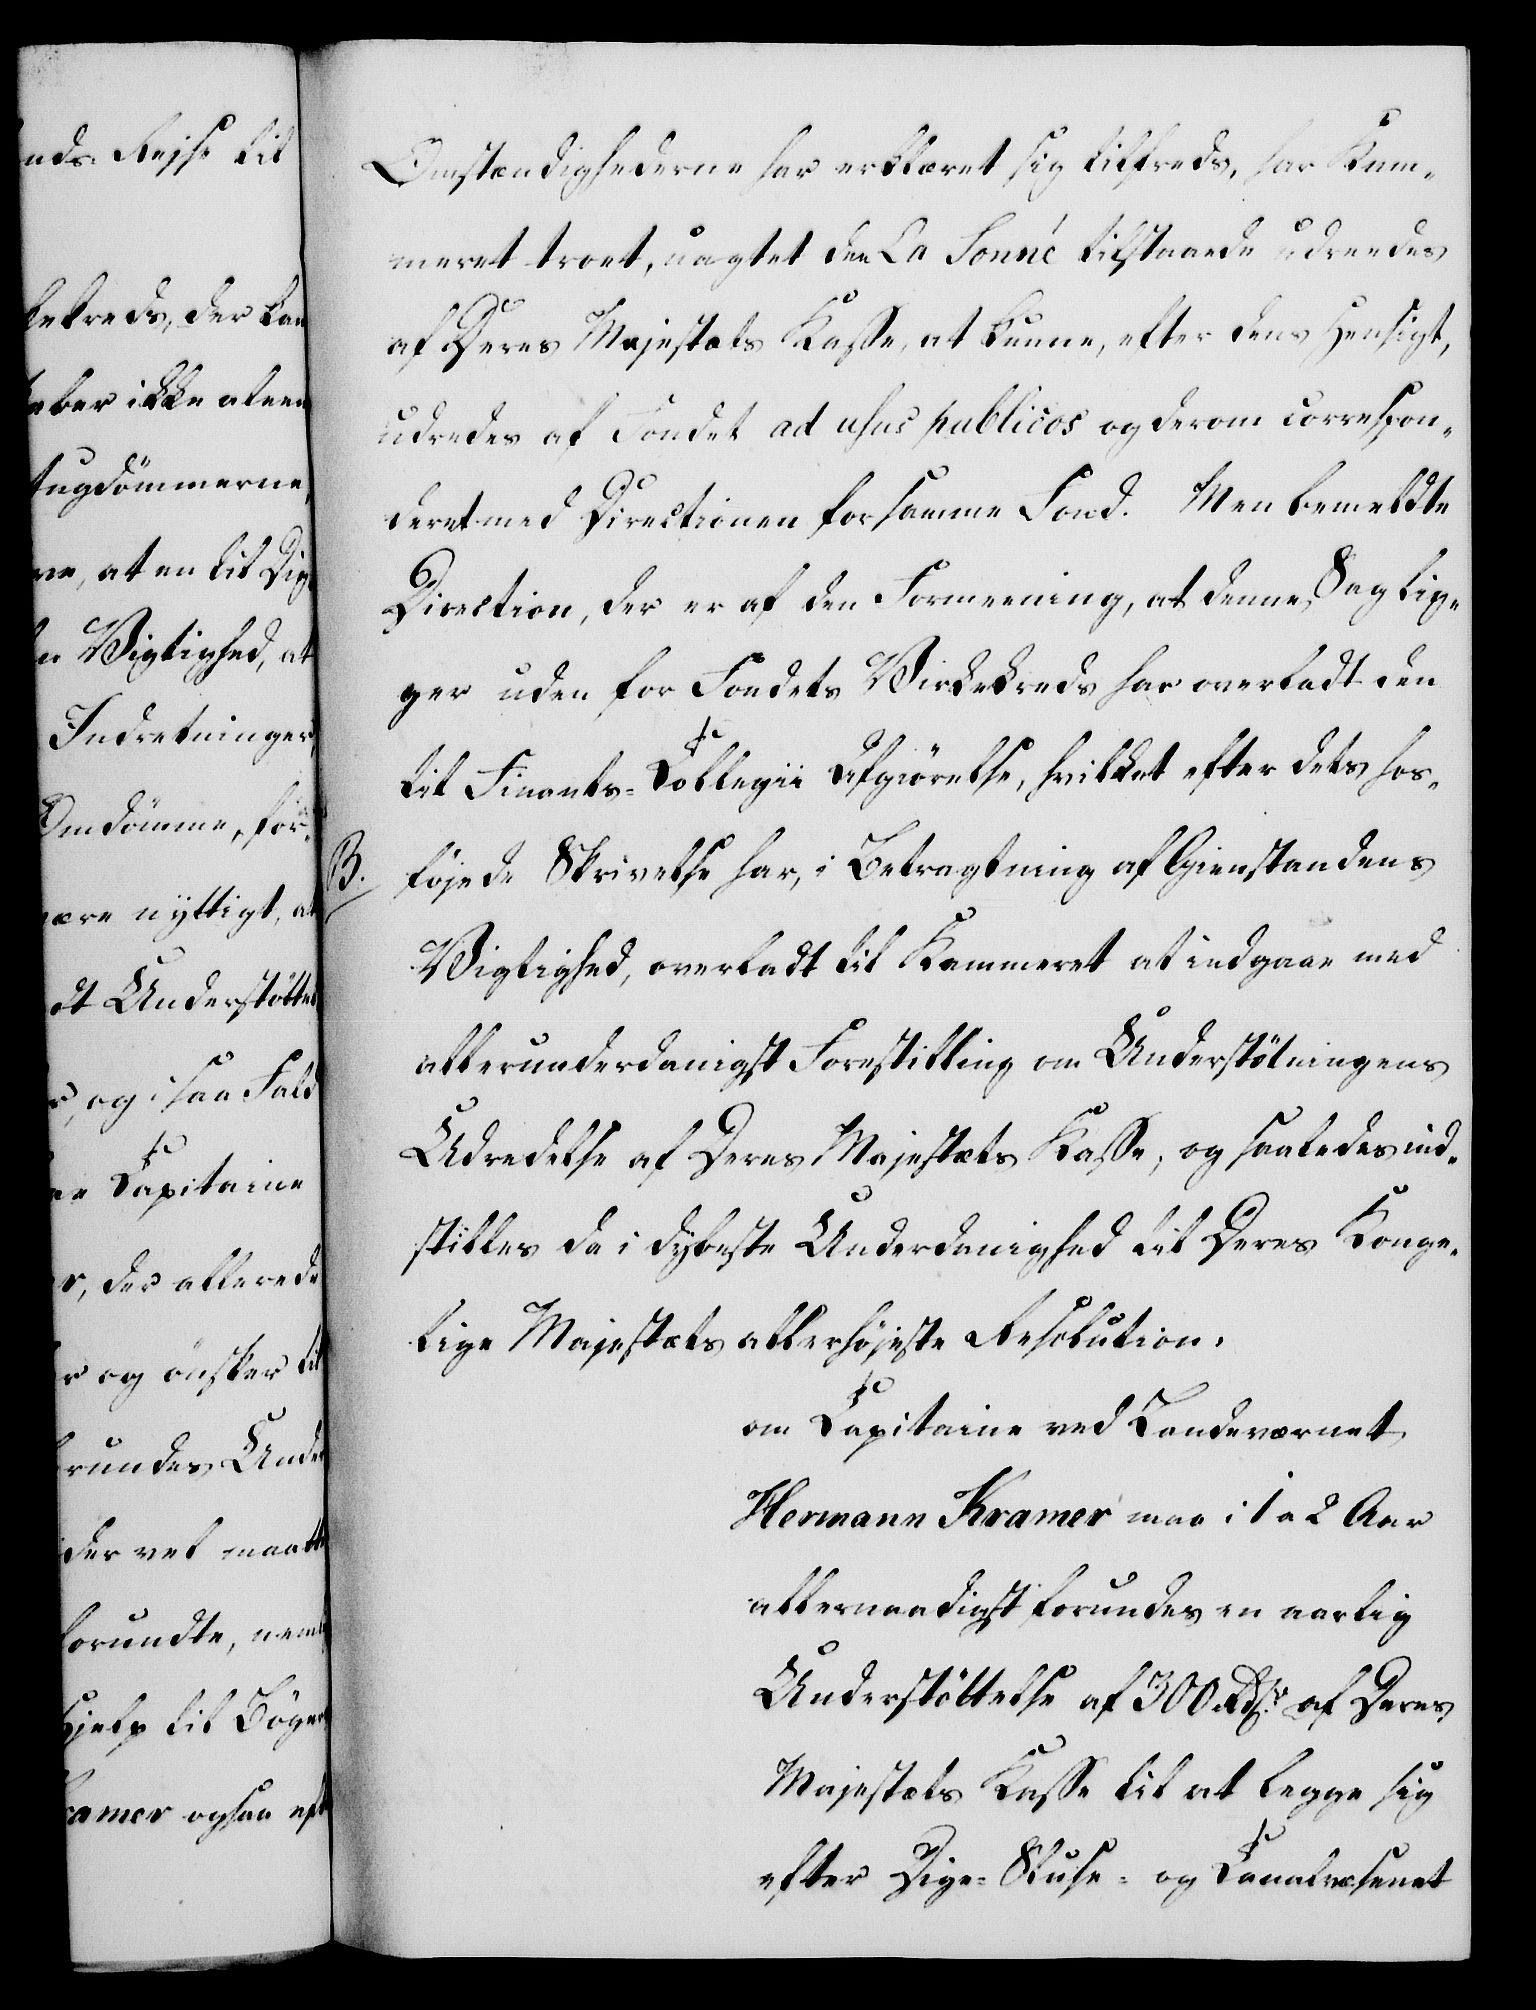 nds Rejse til
lekreds, der kan
ber ikke aleen
tugdömmerne,
re, at en til Dig
n Vigtighed, at
Indretninger,
Omdömme, for-
være nyttigt, at
dt Understöttel
r, og i saa Fald
ne Capitaine
r, der allerede
r og önsker til
rundes Under
der vel maatte
forundte, neml
hjelp til Böger
ramer ogsaa eft
Omstændighederne har erklæret sig tilfreds, har Kam-
meret troet, uagtet den La Sonné tilstaaede udreedes
af Deres Majestæts Kasse, at kunne, efter dens Hensigt,
udredes af Fondet ad usus publicos og derom correspon-
deret med Directionen for samme Fond. Men bemeldte
Direction, der er af den Formeening, at denne Sag lig-
ger uden for Fondets Virkekreds har overladt den
til Finants-Collegii Afgiörelse, hvilket efter dets hos-
B. föjede Skrivelse har, i Betragtning af Gienstandens
Vigtighed, overladt til Kammeret at indgaae med
allerunderdanigst Forestilling om Understötningens
Udredelse af Deres Majestæts Kasse, og saaledes ind-
stilles da i dybeste Underdanighed til Deres Konge-
lige Majestæts allerhöjeste Resolution,
om Capitaine ved Landeværnet
Hermann Kramer maa i 1 a 2 Aar
allernaadigst forundes en aarlig
Understöttelse af 300 Rdlr. af Deres
Majestæts Kasse til at legge sig
efter Dige- Sluse- og Canalvæsenet